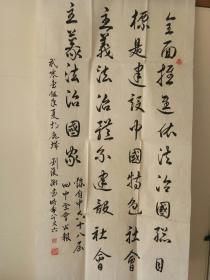 全面推進依法治國總目
標是建設中國特色社會
主義法治體系建設社會
主義法治國家
錄自中共十八屆
四中全會公報